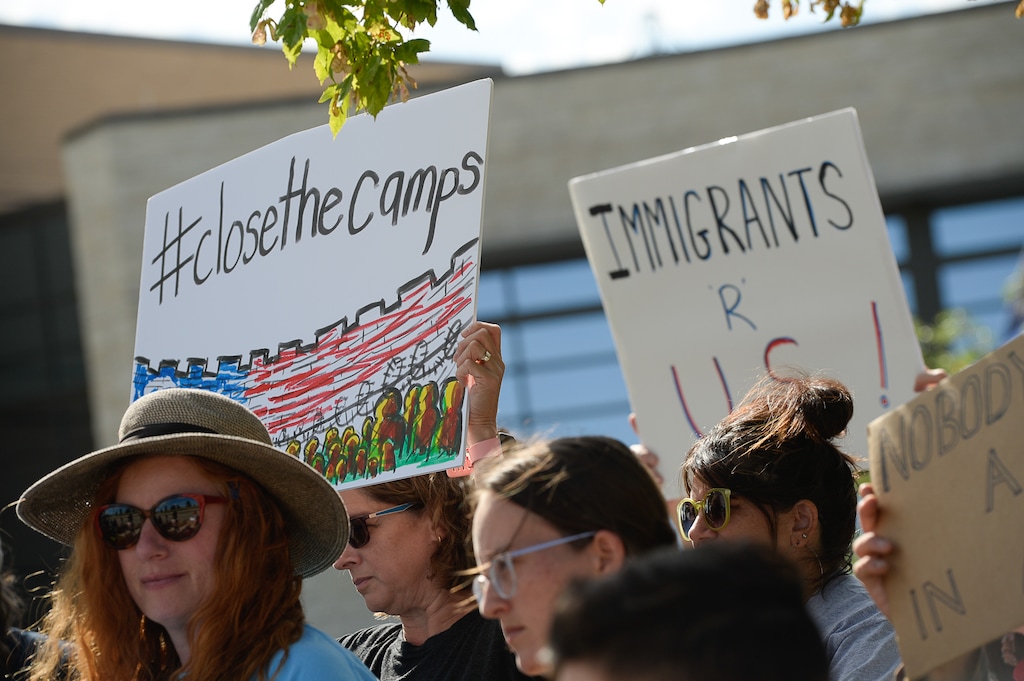 #closethecamps
IMMIGRANTS
'R'
US!
NOBODY
A
IN